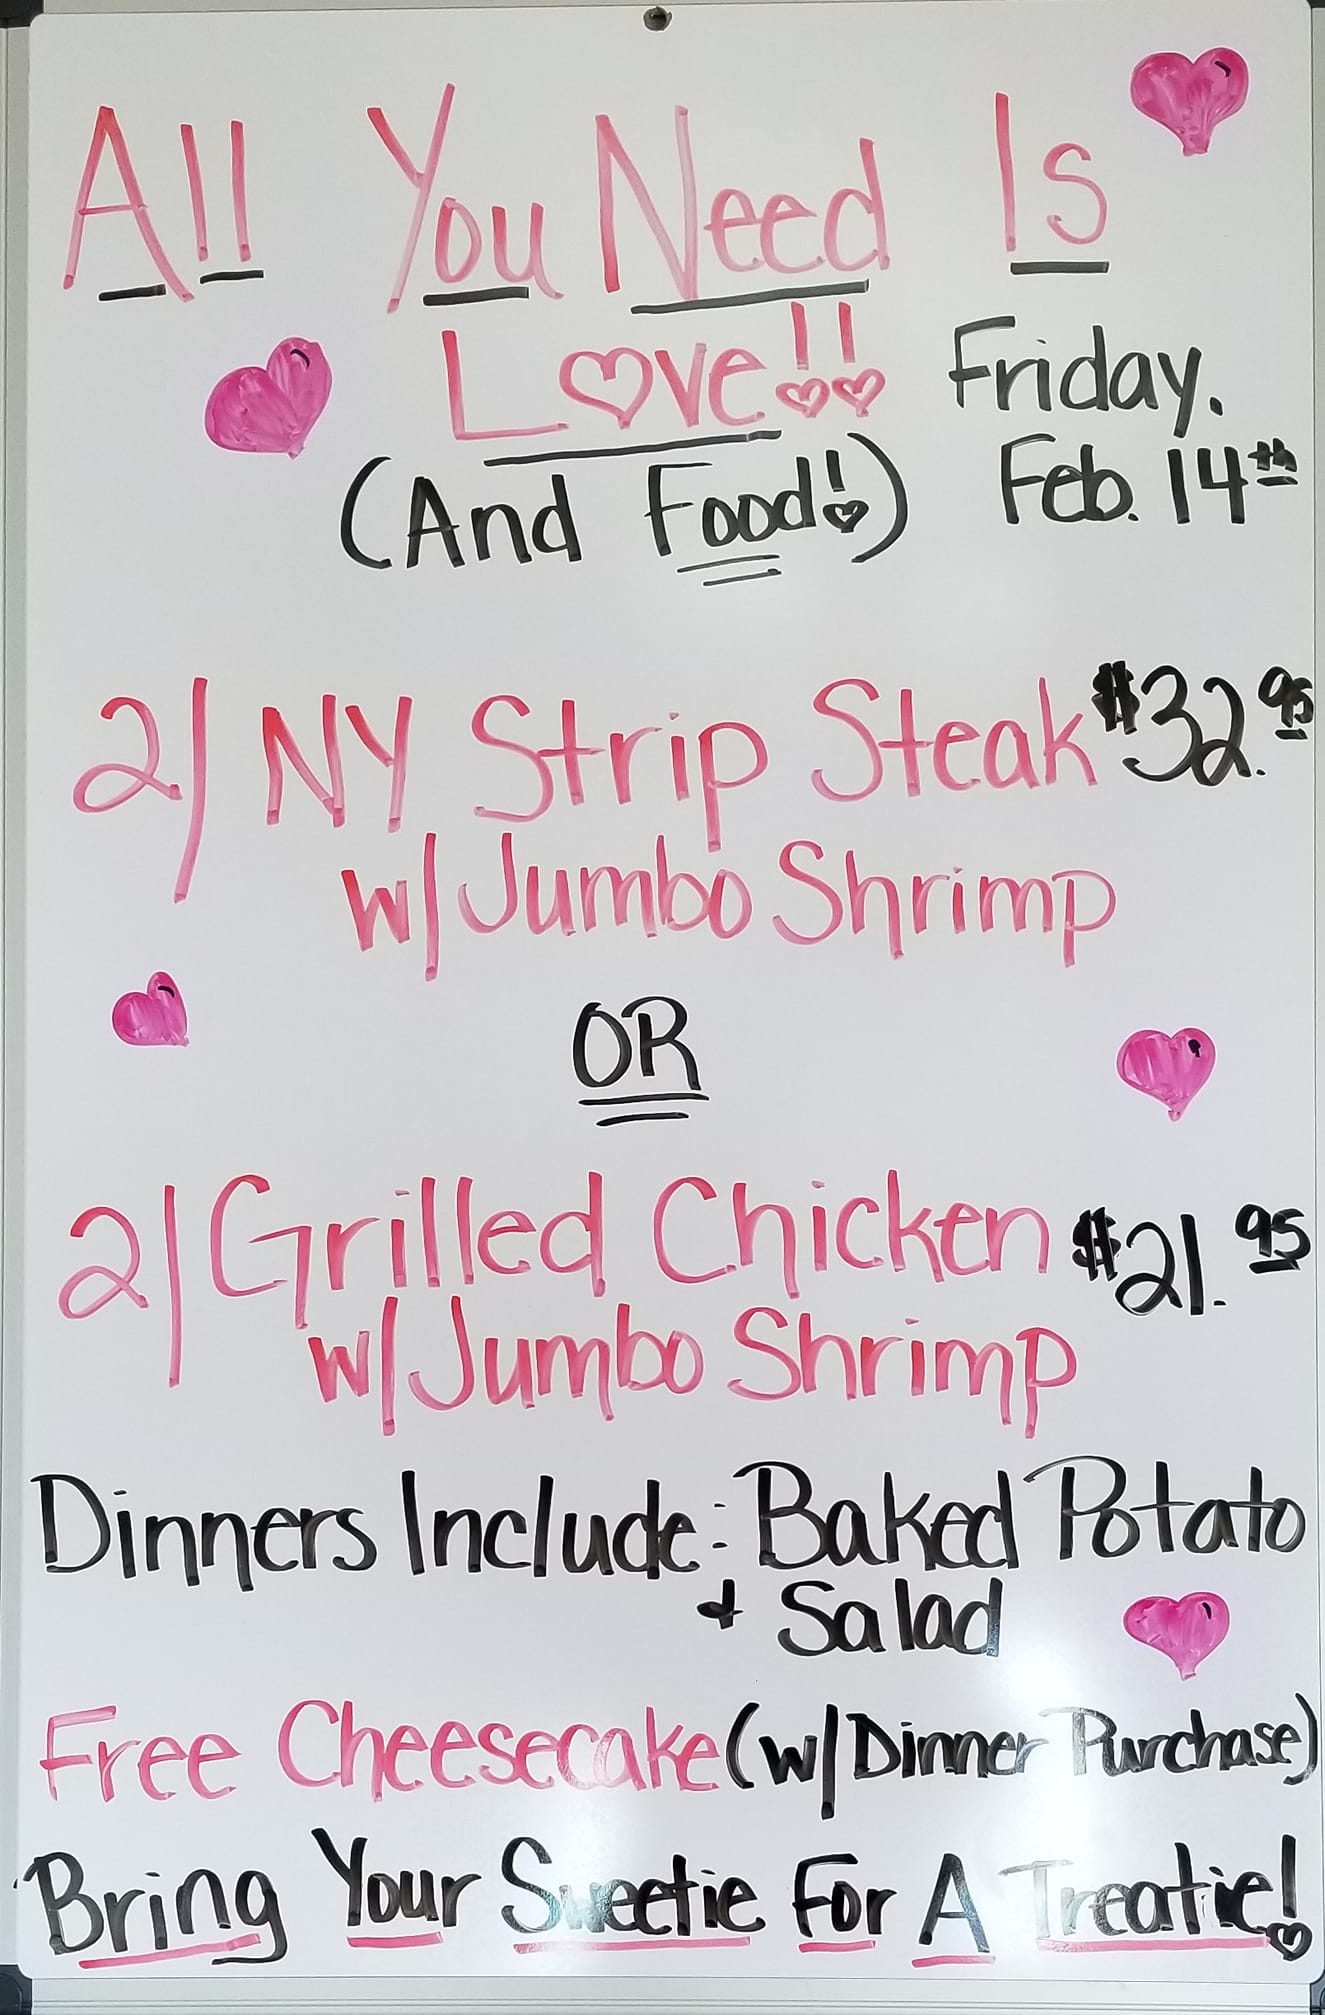 All You Need Is
Love!! Friday.
(And Food!) Feb. 14th
2/ NY Strip Steak $32.95
w/ Jumbo Shrimp
OR
2/ Grilled Chicken $21.95
w/ Jumbo Shrimp
Dinners Include: Baked Potato
+ Salad
Free Cheesecake (w/ Dinner Purchase)
Bring Your Sweetie For A Treatie!